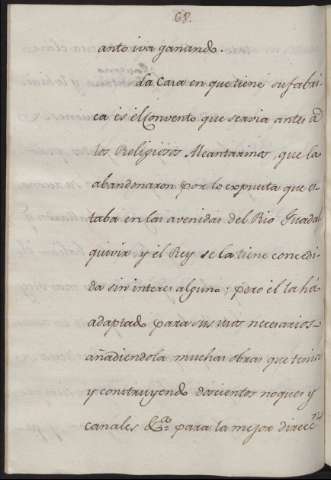 68.
anto iva ganando.
La Casa en que tiene su fabri-
ca es el Convento que servia antes á
los Religiosos Alcantarinos, que la
abandonaron por lo expuesta que es-
taba en las avenidas del Rio Guadal-
quivir y el Rey se la tiene concedi-
da sin interes alguno; pero él la há
adaptado para sus usos necesarios
añadiendola muchas obras que tenia
y construyendo doscientos noques y
canales &ca. para la mejor direcc.on